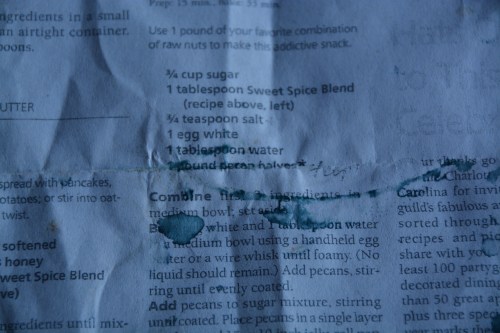 ngredients in a small
an airtight container.
poons.
UTTER
spread with pancakes,
otatoes; or stir into oat-
twist.
softened
s honey
weet Spice Blend
ve)
redients until mix-
Prep: 15 min.,
Use 1 pound of your favorite combination
of raw nuts to make this addictive snack.
¾ cup sugar
1 tablespoon Sweet Spice Blend
(recipe above, left)
¾ teaspoon salt
1 egg white
1 tablespoon water
1 pound pecan halves*
Combine first 3 ingredients in a
medium bowl; set aside.
white and 1 tablespoon water
medium bowl using a handheld egg
ter or a wire whisk until foamy. (No
liquid should remain.) Add pecans, stir-
ring until evenly coated.
Add pecans to sugar mixture, stirring
until coated. Place pecans in a single layer
ur thanks go
Charlot
Carolina for inv
guild's fabulous a
sorted through
recipes and pic
share with you
least 100 party
decorated dinin
than 50 great ap
plus three spec